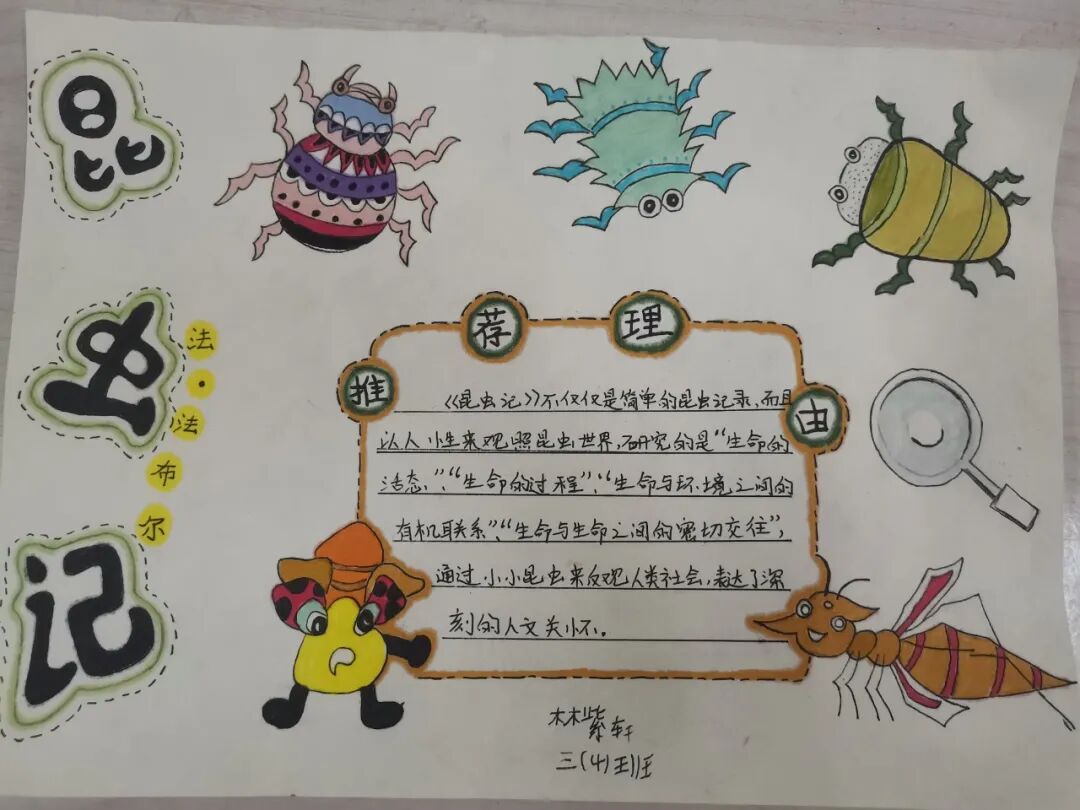 昆虫记
法·法布尔
推荐理由
《昆虫记》不仅仅是简单的昆虫记录,而且
以人小生来观照昆虫世界,研究的是“生命的
活态”、“生命的过程”、“生命与环境之间的
有机联系”、“生命与生命之间的密切交往”,
通过小小昆虫来反观人类社会,表达了深
刻的人文关怀。
林紫轩
三(4)班